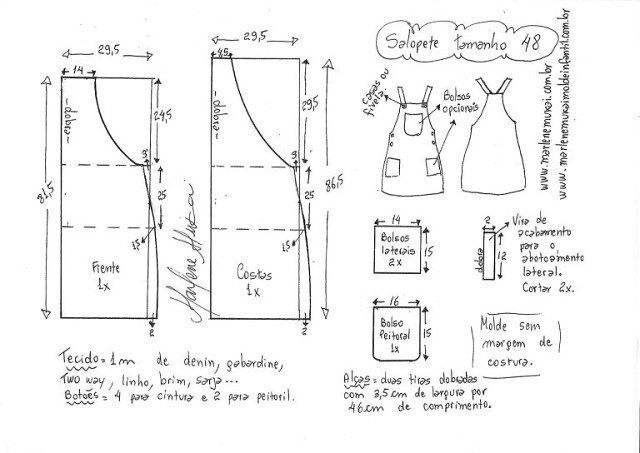 Salopete tamanho 48
29,5
14
-dobra-
24,5
3
25
81,5
1,5
Frente
1x
2
29,5
6,5
-dobra-
29,5
3
25
86,5
1,5
Costas
1x
2
Marlene Mukai
casas ou
fivela
Bolsos
opcionais
www.marlenemukai.com.br
www.marlenemukaimoldeinfantil.com.br
14
Bolsos
laterais
2x
15
2
dobra
12
Vira de
acabamento
para o
abotoamento
lateral.
Cortar 2x.
16
Bolso
Peitoral
1x
15
Molde sem
margem de
costura.
Tecido = 1m de denin, gabardine,
Two way, linho, brim, sarja...
Botões = 4 para cintura e 2 para peitoril.
Alças = duas tiras dobradas
com 3,5cm de largura por
46cm de comprimento.